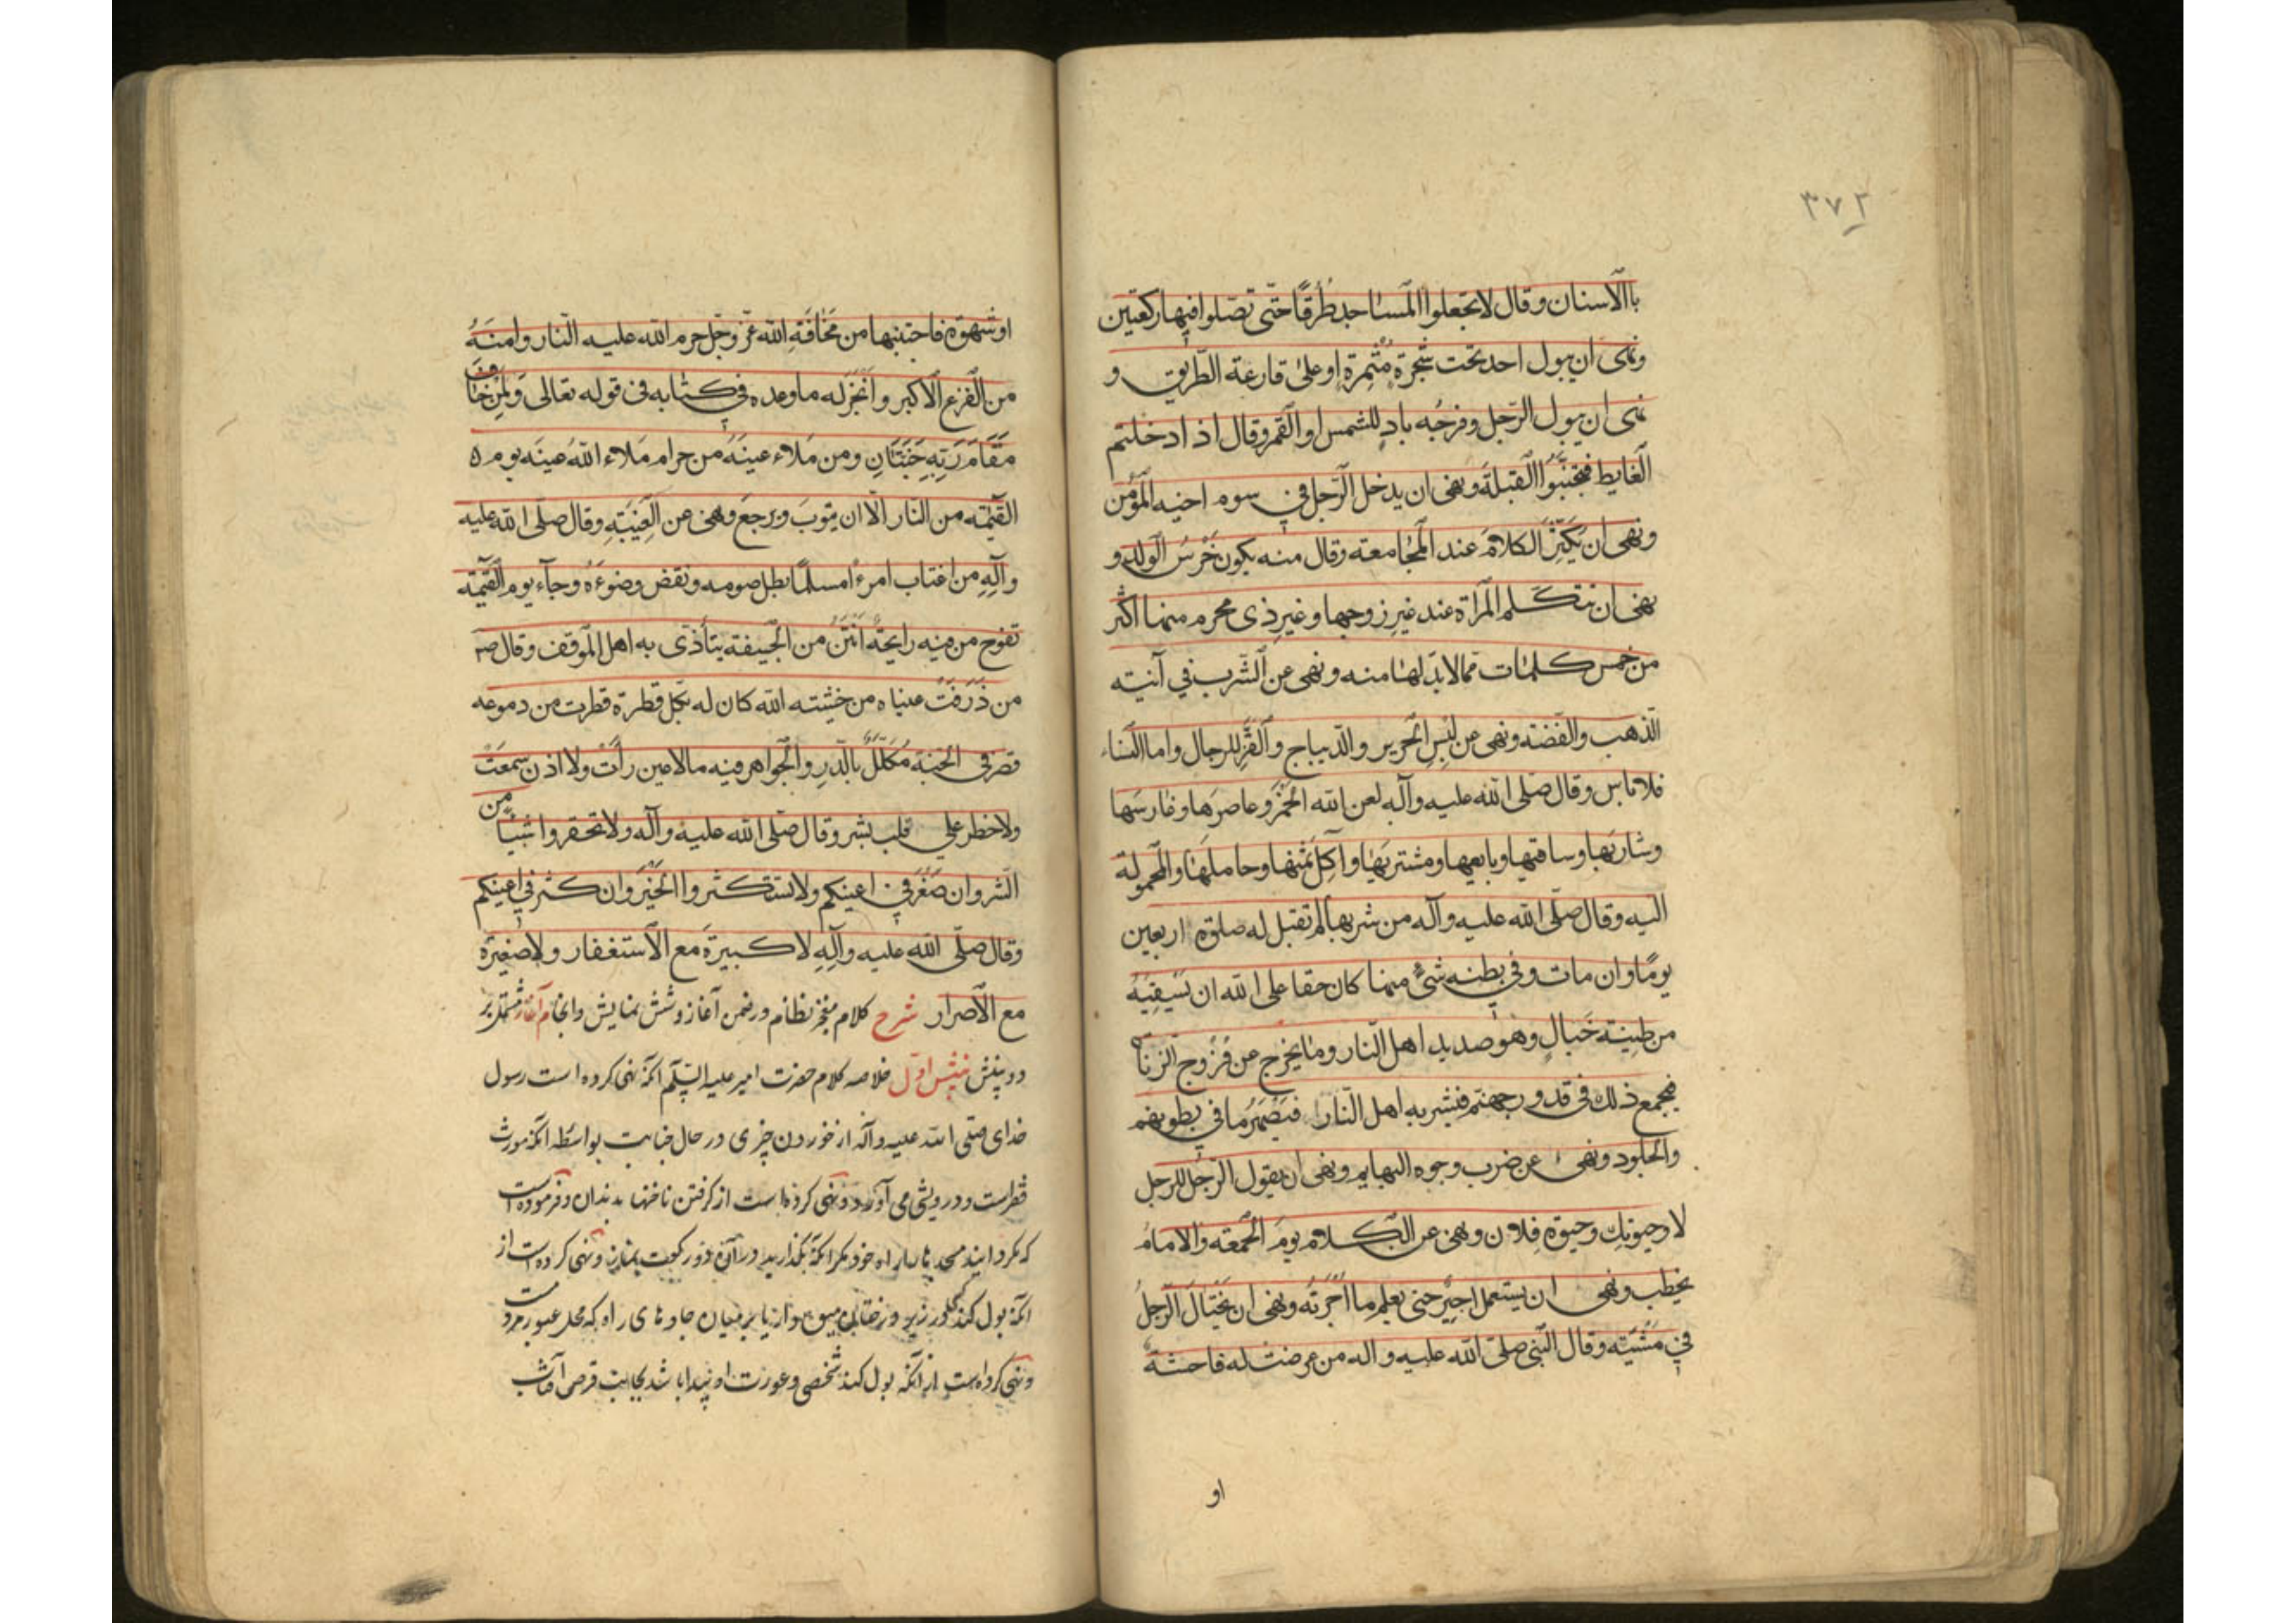 ٣٧٢
باالأسنان وقال لا تجعلوا المساجد طُرقًا حتّى تصلوا فيها ركعتين
ونهى ان يبول احد تحت شجرة مُثمِرةٍ او على قارعة الطّريق و
نهى ان يبول الرّجل وفرجُه بادٍ للشمس او القمر وقال اذا دخلتم
الغايط فتجنّبوا القبلة ونهى ان يدخل الرّجل في سوم اخيه المؤمن
ونهى ان يُكثِرَ الكلامَ عند المجامعة وقال منه يكون خَرَسُ الولد و
نهى ان تتكلم المرأة عند غير زوجها وغير ذى محرم منها اكثر
من خمس كلمات ممّا لابدّ لها منه ونهى عن الشّرب في آنية
الذهب والفضة ونهى عن لُبسِ الحَرير والدّيباج والقَزّ للرجال واما النساء
فلا باس وقال صلى الله عليه وآله لعن الله الخمرَ وعاصرَها وغارسَها
وشاربَها وساقيها وبايعها ومشتريَها وآكِلَ ثمنها وحاملَها والمحمولة
اليه وقال صلّى الله عليه وآله من شربها لم تقبل له صلوة اربعين
يومًا وان مات وفي بطنه شئٌ منها كان حقا على الله ان يَسقِيَهُ
من طِينة خَبالٍ وهو صديد اهل النّار وما يخرج من فُرُوج الزناة
فيجمع ذلك في قدور جهنّم فيشربه اهل النّار فيَصْهَرُ ما في بطونهم
والجلود ونهى عن ضرب وجوه البهايم ونهى ان يقول الرّجُل للرجل
لا وحيوتك وحيوة فلان ونهى عن الكلام يومَ الجمعة والامامُ
يخطب ونهى ان يستعمل اجيرٌ حتى يعلم ما اُجرَتُه ونهى ان يَختالَ الرّجلُ
في مَشيته وقال النّبي صلى الله عليه واله من عرضت له فاحشة
او
او شهوة فاجتنبها من مَخافَةِ الله عزّ وجلّ حرم الله عليه النّار وامنَهُ
من الفَزع الاكبر وانجز له ما وعده في كتابه في قوله تعالى وَلِمَن خافَ
مَقَامَ رَبّهِ جَنّتَانِ ومن مَلاء عينَهُ من حرام مَلاء الله عينَه يوم
القيمة من النّار الّا ان يتوبَ ويرجعَ ونهى عن الغِيبَةِ وقال صلّى الله عليه
وآلِهِ من اغتاب امرءًا مسلمًا بطل صومه ونقض وضوءُهُ وجآء يوم القيمة
تفوح من فيه رايحةٌ انتَنُ من الجيفة يتأذّى به اهل الموقف وقال صم
من ذَرَفتْ عيناه من خشية الله كان له بكلّ قطرة قطرت من دموعه
قصر في الجنة مُكلّلٌ بالدّرِ والجواهر فيه ما لا عين رأتْ ولا اذن سمعتْ
ولا خطر على قلب بشر وقال صلّى الله عليه وآله ولا تحقروا شيئًا من
الشر وان صَغُرَ في اعينكم ولا تستكثروا الخيرَ وان كثر في اعينكم
وقال صلّى الله عليه وآلهِ لا كبيرةَ مع الأستغفار ولا صغيرَةَ
مع الأصرار شرح كلام معجز نظام در ضمن آغاز وشش نمايش وانجام آغاز مشتمل بر
دو بينش بينش اوّل خلاصه كلام حضرت امير عليه السّلم آنكه نهى كرده است رسول
خداى صلى الله عليه وآله از خوردن چيزى در حال جنابت بواسطه آنكه مورث
فقر است ودرويشى مى آورد ونهى كرده است از كرفتن ناخنها بدندان وفرموده است
كه مكردانيد مسجدها را راه خود مكر آنكه بكذاريد در آن دو ركعت نماز ونهى كرده است از
آنكه بول كند كسى در زير درختان ميوه دار يا بر ميان جاده هاى راه كه محل عبور مردمست
ونهى كرده است از آنكه بول كند شخصى وعورت او پيدا باشد بجانب قرص آفتاب